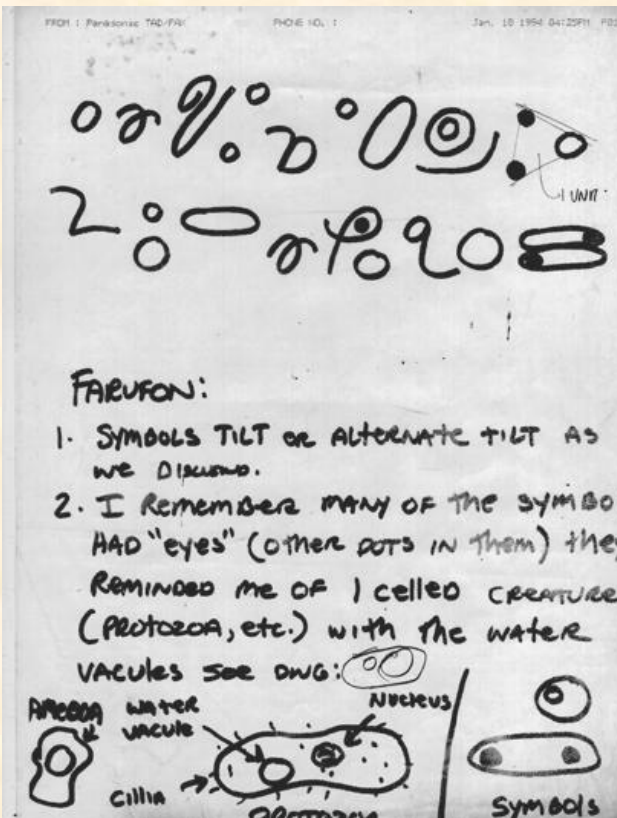 FROM : Panasonic TAD/FAX PHONE NO. : Jan. 10 1994 04:25PM P01
1 UNIT
FARUFON:
1. SYMBOLS TILT OR ALTERNATE TILT AS
WE
2. I REMEMBER MANY OF THE SYMBO
HAD "eyes" (OTHER DOTS IN Them) they
REMINDED me OF 1 celled CREATURE
(PROTOZOA, etc.) with The WATER
VACULES See DWG:
AMEOBA WATER VACULE NUCLEUS
Cillia PROTOZOA SYMBOLS